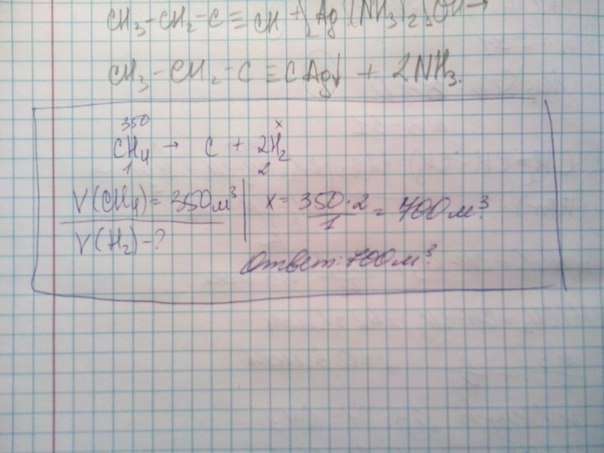 CH₃-CH₂-C≡CH + [Ag(NH₃)₂]OH→
CH₃-CH₂-C≡CAg↓ + 2NH₃.
350 x
CH₄ → C + 2H₂
1 2
V(CH₄) = 350м³ | x = 350·2/1 = 700м³.
V(H₂) - ?
Ответ: 700м³.